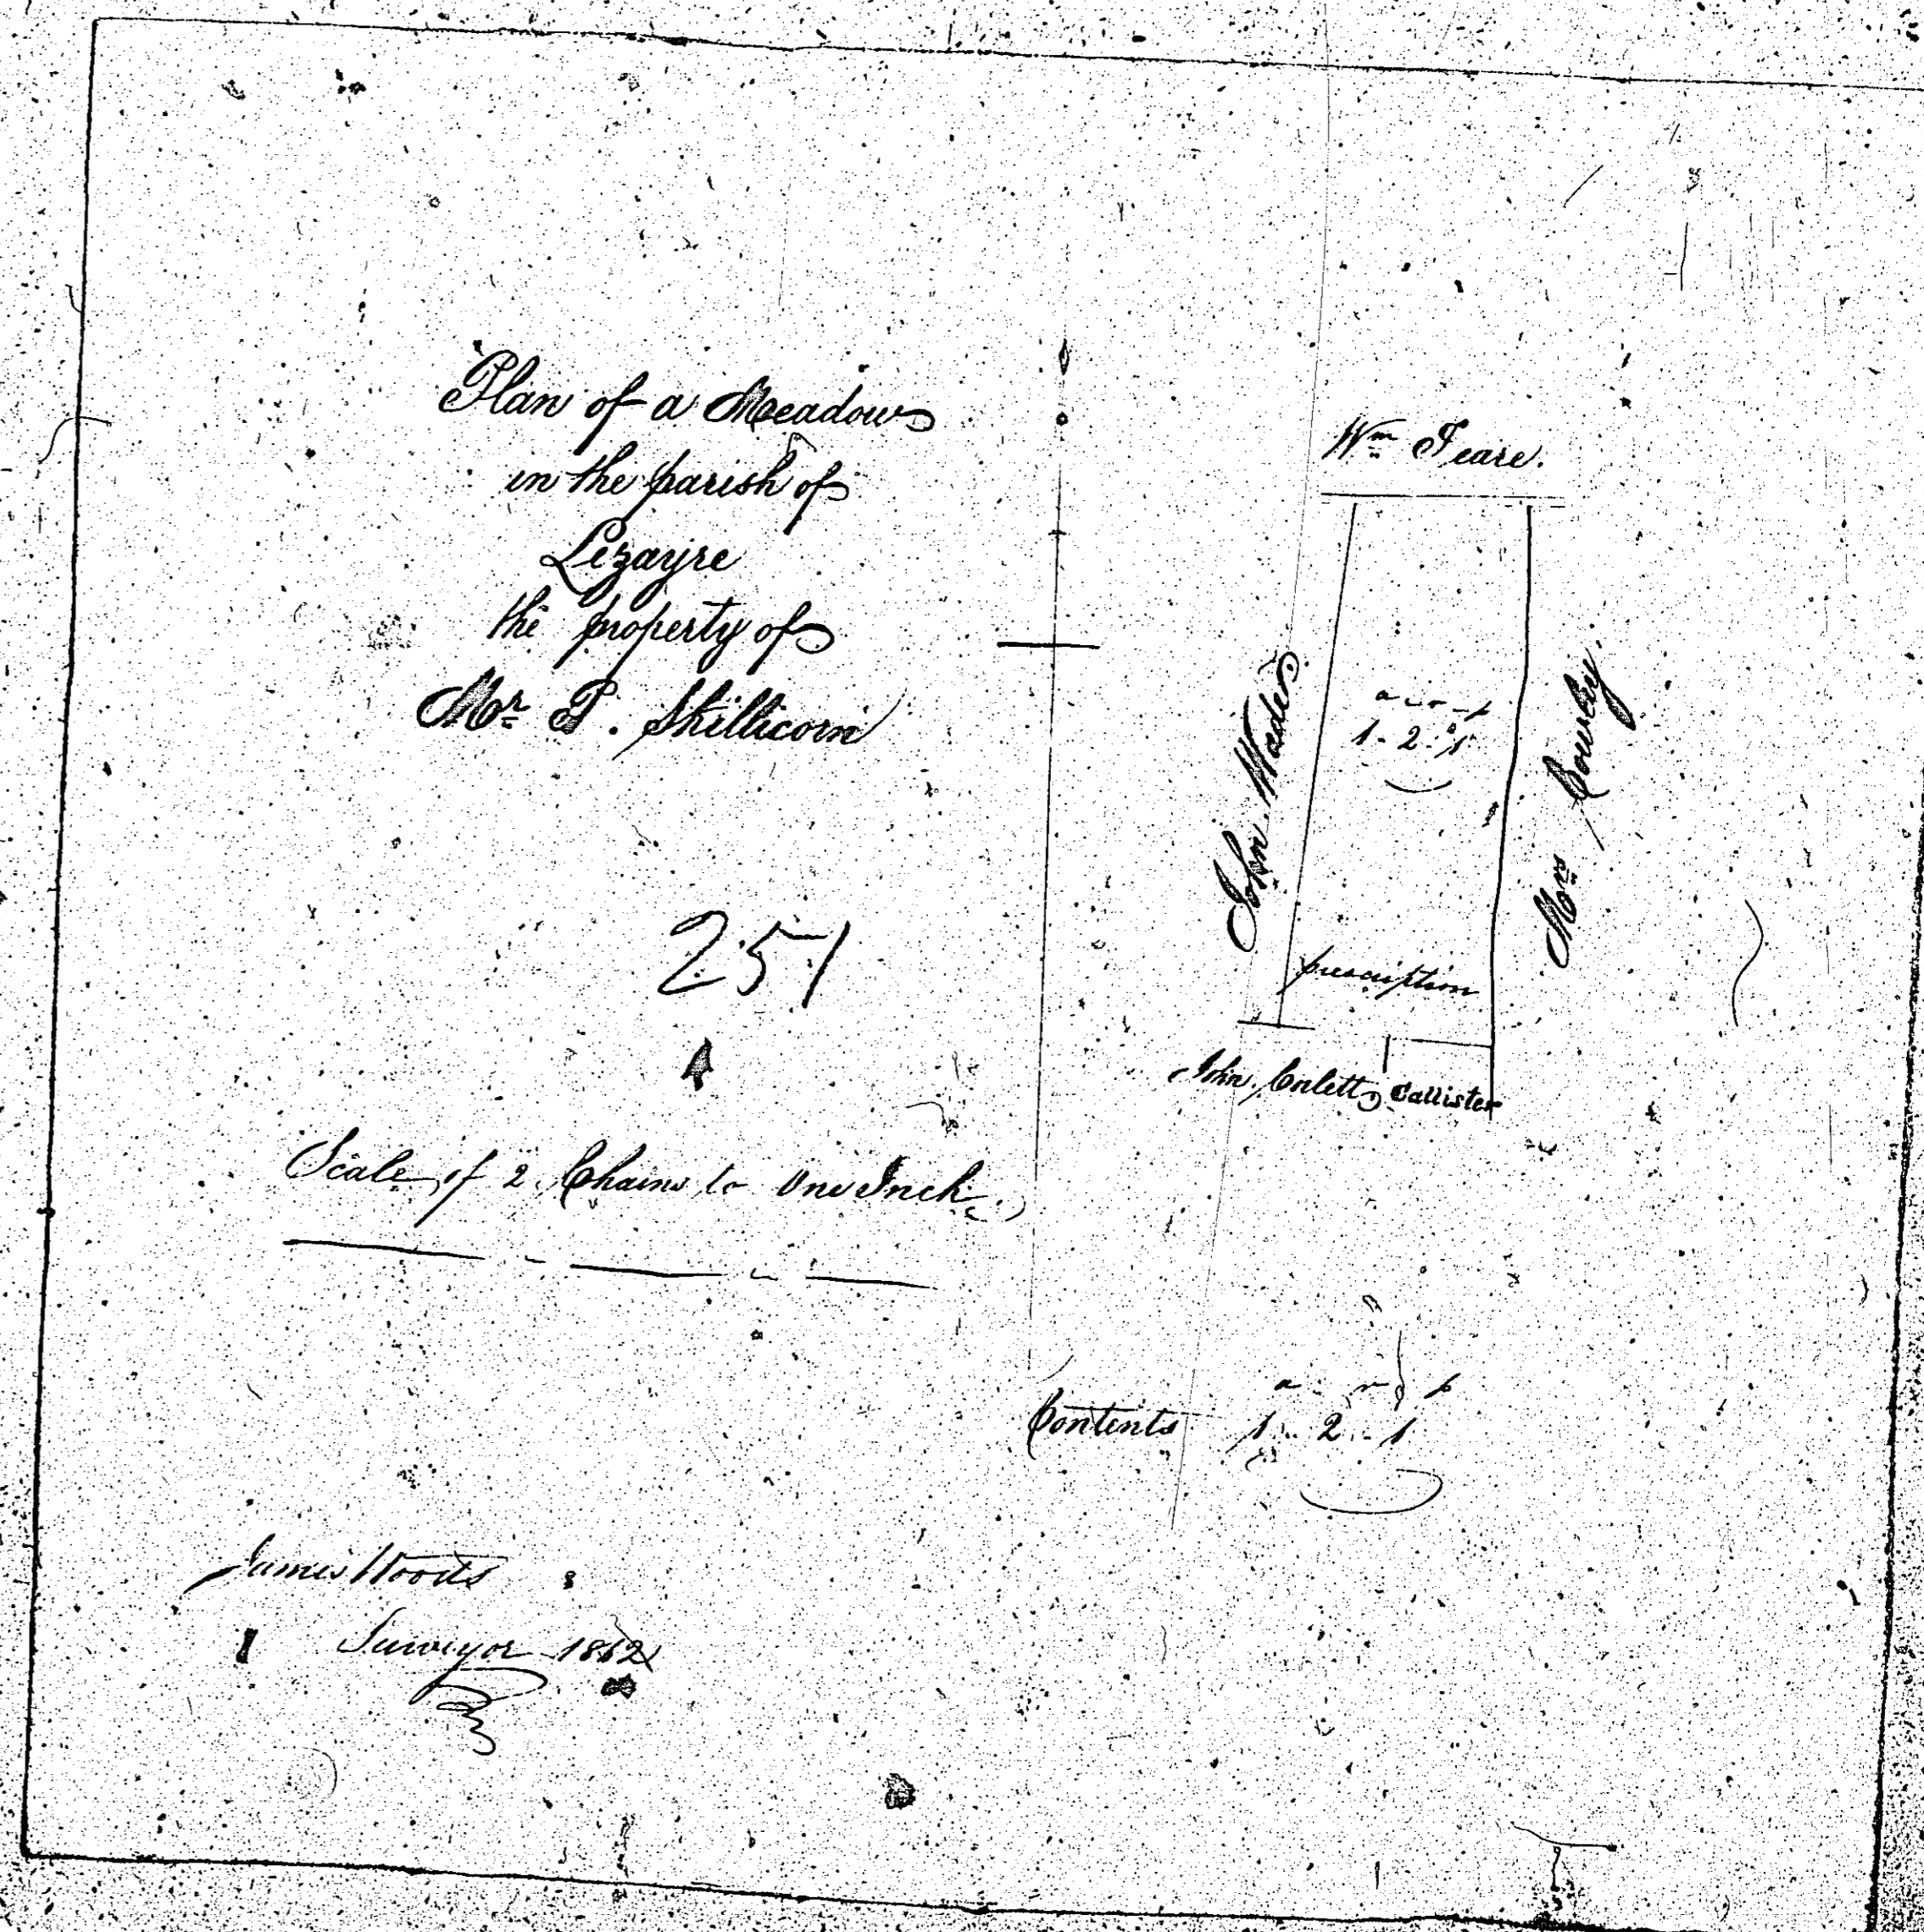 Plan of a Meadow
in the parish of
Lezayre
the property of
Mr. P. Skillicorn
251
Scale of 2 Chains to One Inch.
James Woods
Surveyor 1862
Wm Teare.
John Wade
a - r - p
1 - 2 - 1
Mrs Cowley.
prescription
John Corlett Callister
a - r - p
Contents 1 - 2 - 1